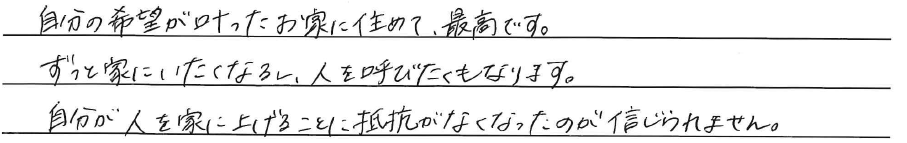 自分の希望が叶ったお家に住めて、最高です。
ずっと家にいたくなるし、人を呼びたくもなります。
自分が人を家に上げることに抵抗がなくなったのが信じられません。